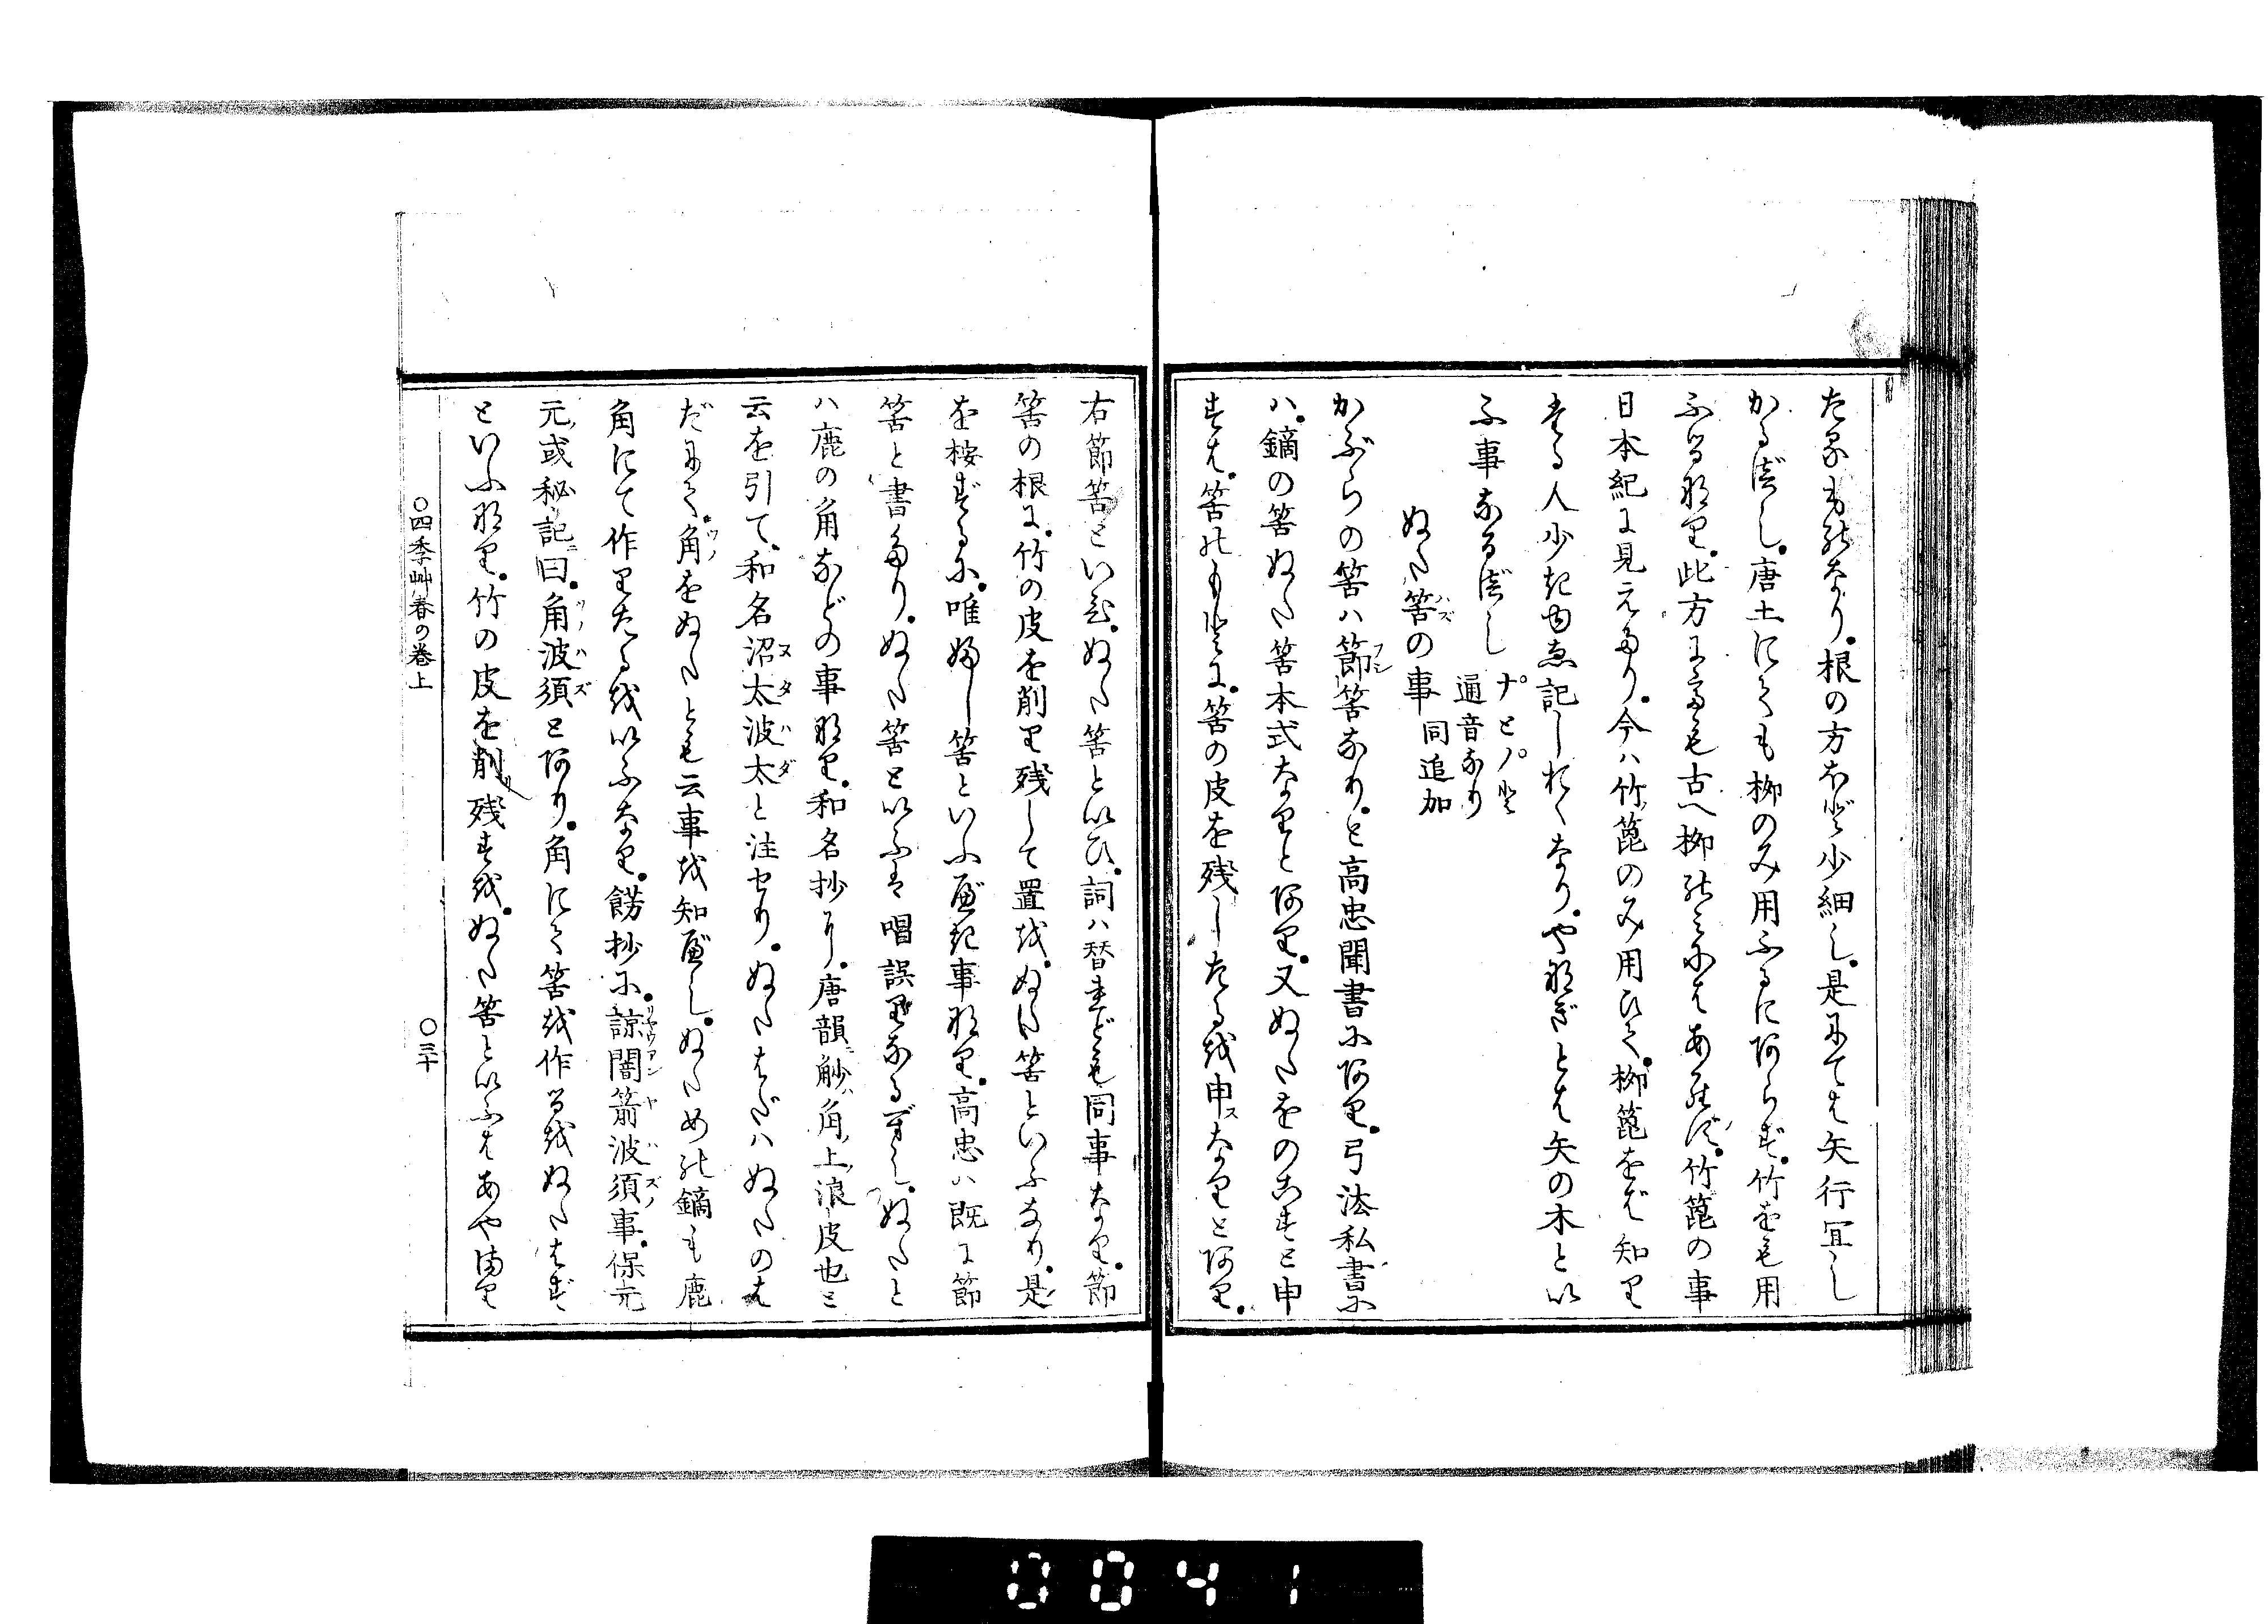 たるも能なり。根の方ほど少細し。是にては矢行宜し
かるべし。唐土にても栁のみ用ふるに阿らず。竹をも用
ふる那里。此方にても古へ栁能ミにはあらず。竹箆の事
日本紀に見えたり。今ハ竹箆のみ用ひて。栁箆をば知里
たる人少きゆゑ記しおくなり。や那ぎとは矢の木といい
ふ事なるべし
ナとノと
通音なり
ぬた筈の事 同追加
かぶらの筈ハ節筈なり。と高忠聞書に阿里。弓法私書に
ハ。鏑の筈ぬた筈本式なりと阿里。又ぬたをのこすと申
すは。筈のもとに。筈の皮を残したるを申スなりと阿里。
右節筈といひ。ぬた筈といひ。詞ハ替れども同事なり。節
筈の根に。竹の皮を削り残して置を。ぬた筈といふなり。是
を桉ずるに。唯婦し筈といふべき事那里。高忠ハ既に節
筈と書たり。ぬた筈といふは唱誤りなるべし。ぬたと
ハ鹿の角などの事那里。和名抄に。唐韻ニ觘ハ角ノ上ノ浪皮也と
云を引て。和名沼太波太と注せり。ぬたはだハぬたのは
だにて。角をぬたとも云事を知べし。ぬため能鏑も鹿
角にて作りたるをいふなり。餝抄に。諒闇箭波須事。保元
元ノ或秘記ニ曰。角波須と阿り。角にて筈を作るをぬたはず
といふ那里。竹の皮を削り残すを。ぬた筈といふはあやまり
○四季艸春の巻上
○三十
0041